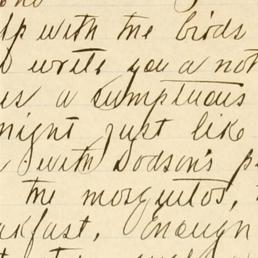 up with the birds
write you a not
us a sumptuous
night just like
with Dodson's p
the mosquitos,
akfast, enough